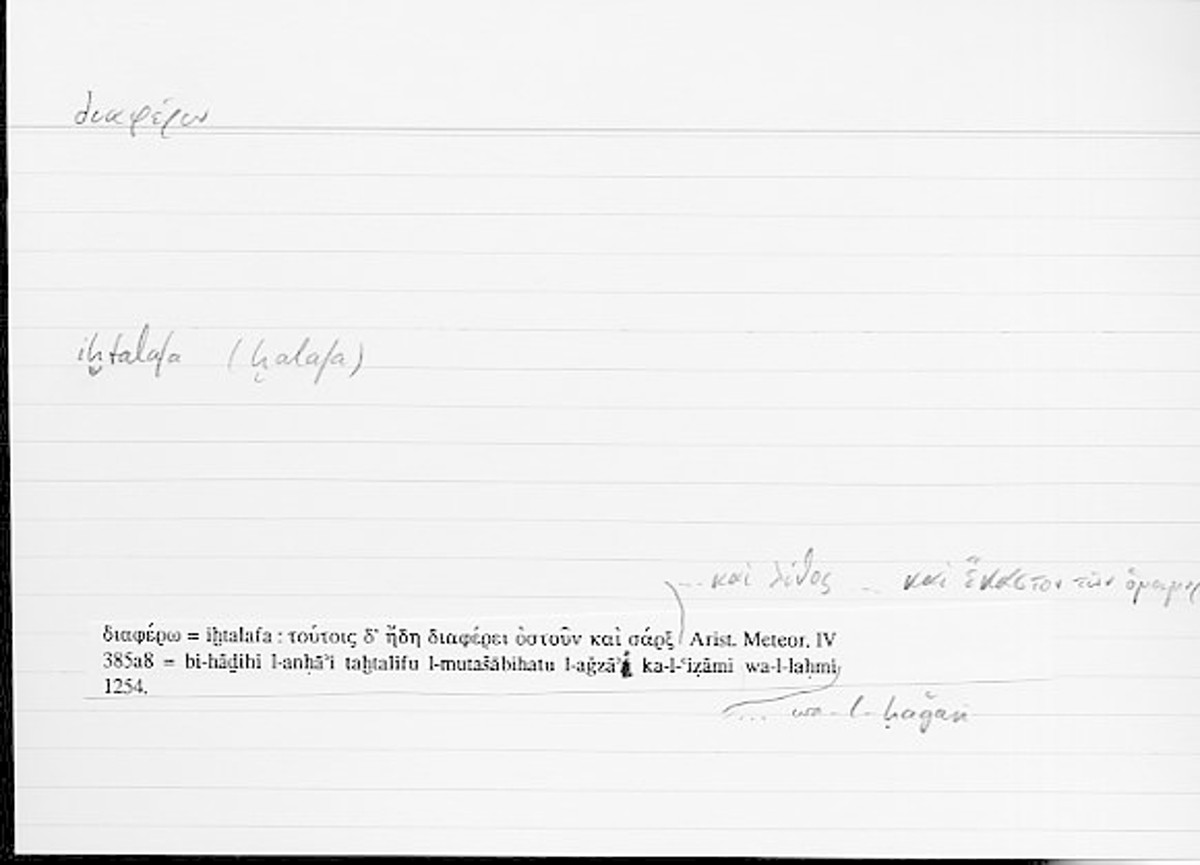 διαφέρω
iḫtalafa (ḫalafa)
... καὶ λίθος ... καὶ ἕκαστον τῶν
διαφέρω = iḫtalafa : τούτοις δ' ἤδη διαφέρει ὀστοῦν καὶ σάρξ Arist. Meteor. IV
385a8 = bi-hāḏihi l-anḥāʾi taḫtalifu l-mutašābihatu l-aǧzāʾi ka-l-ʿiẓāmi wa-l-laḥmi
1254.
... wa-l-ḥaǧari